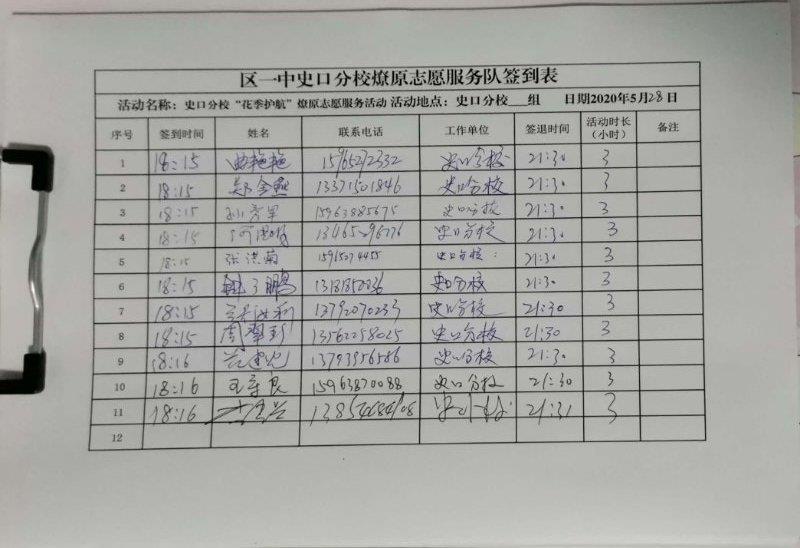 区一中史口分校燎原志愿服务队签到表
活动名称：史口分校“花季护航”燎原志愿服务活动 活动地点：史口分校___组 日期2020年5月28日
序号 签到时间 姓名 联系电话 工作单位 签退时间 活动时长（小时） 备注
1 18:15 15965272332 史口分校 21:30 3
2 18:15 13371501846 史口分校 21:30 3
3 18:15 15963885675 史口分校 21:30 3
4 18:15 史口分校 21:30 3
5 18:15 张洪菊 史口分校 21:30 3
6 18:15 史口分校 21:30 3
7 18:15 13792070233 史口分校 21:30 3
8 18:15 13562258025 史口分校 21:30 3
9 18:16 13793956586 史口分校 21:30 3
10 18:16 15963870088 史口分校 21:30 3
11 18:16 史口分校 21:31 3
12